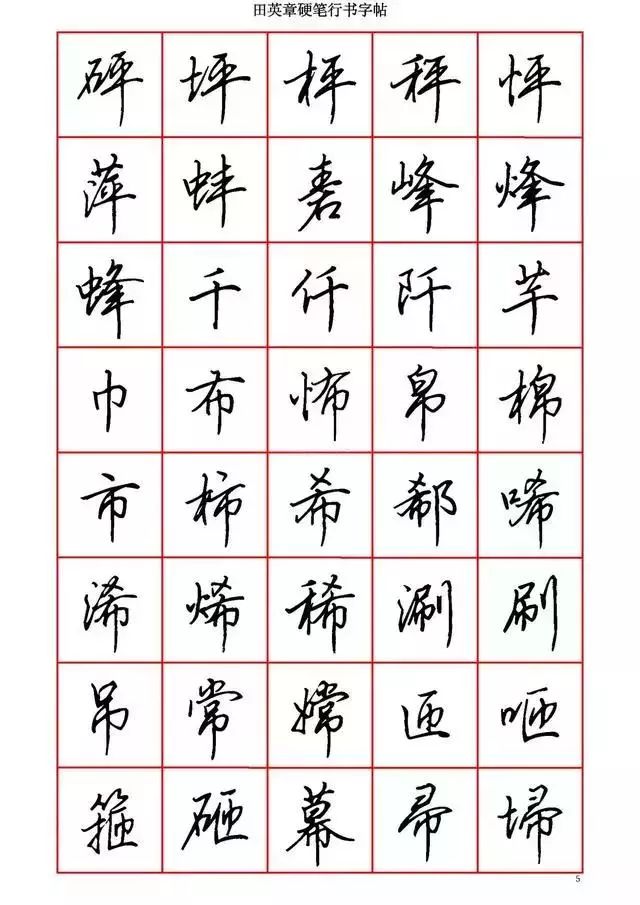 田英章硬笔行书字帖
砰坪枰秤怦
萍蚌砉峰烽
蜂千仟阡芊
巾布怖帛棉
市柿希郗唏
浠烯稀涮刷
吊常嫦匝咂
箍砸幕帚埽
5